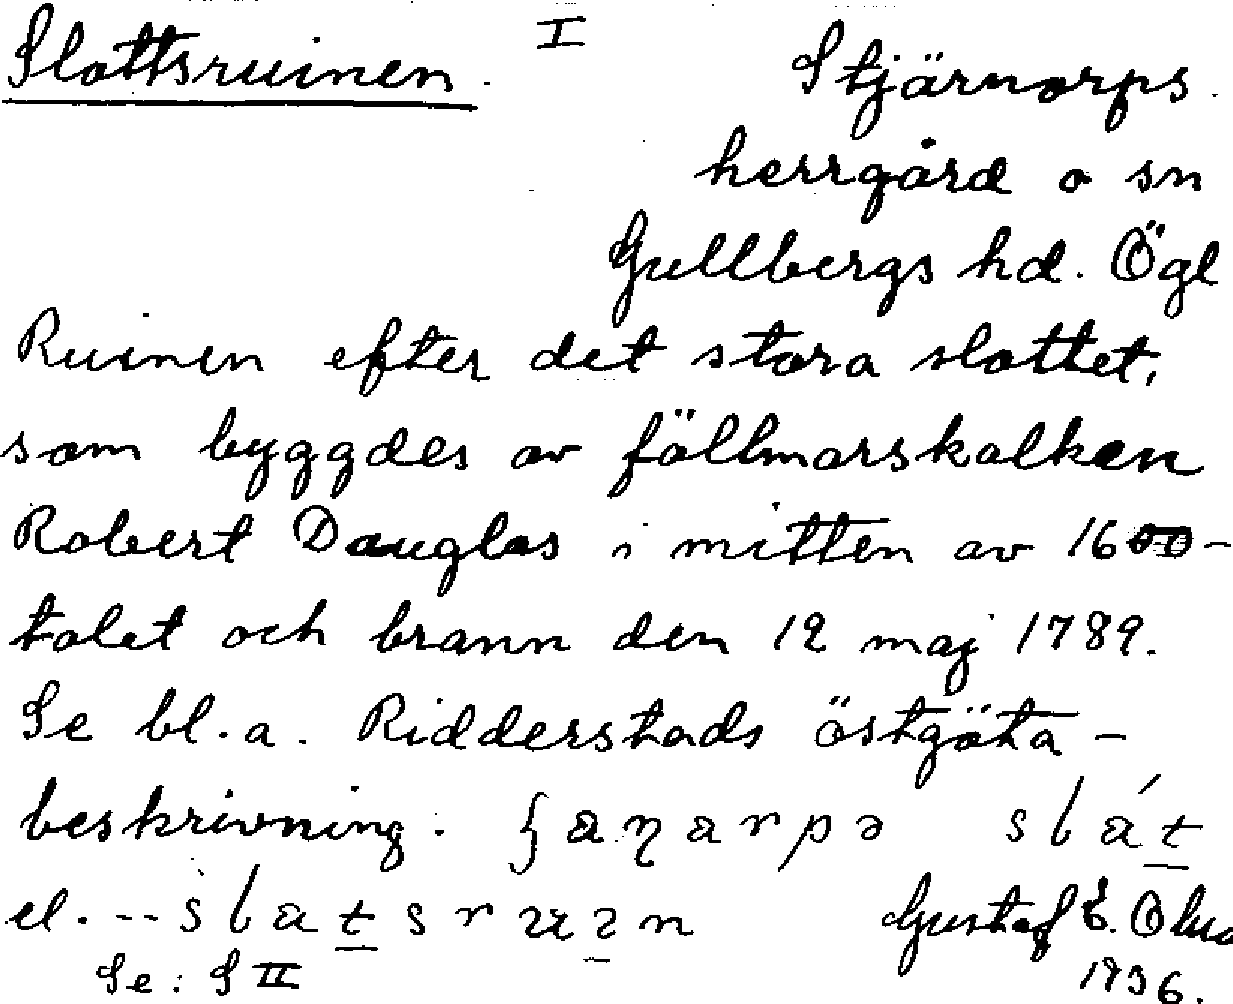 Slottsruinen. I Stjärnorps
herrgård o sn
Gullbergs hd. Ögl
Ruinen efter det stora slottet,
som byggdes av fällmarskalken
Robert Douglas i mitten av 1600-
talet och brann den 12 maj 1789.
Se bl.a. Ridderstads östgöta-
beskrivning.
el. --
Gustaf E.
1936.
Se: S II